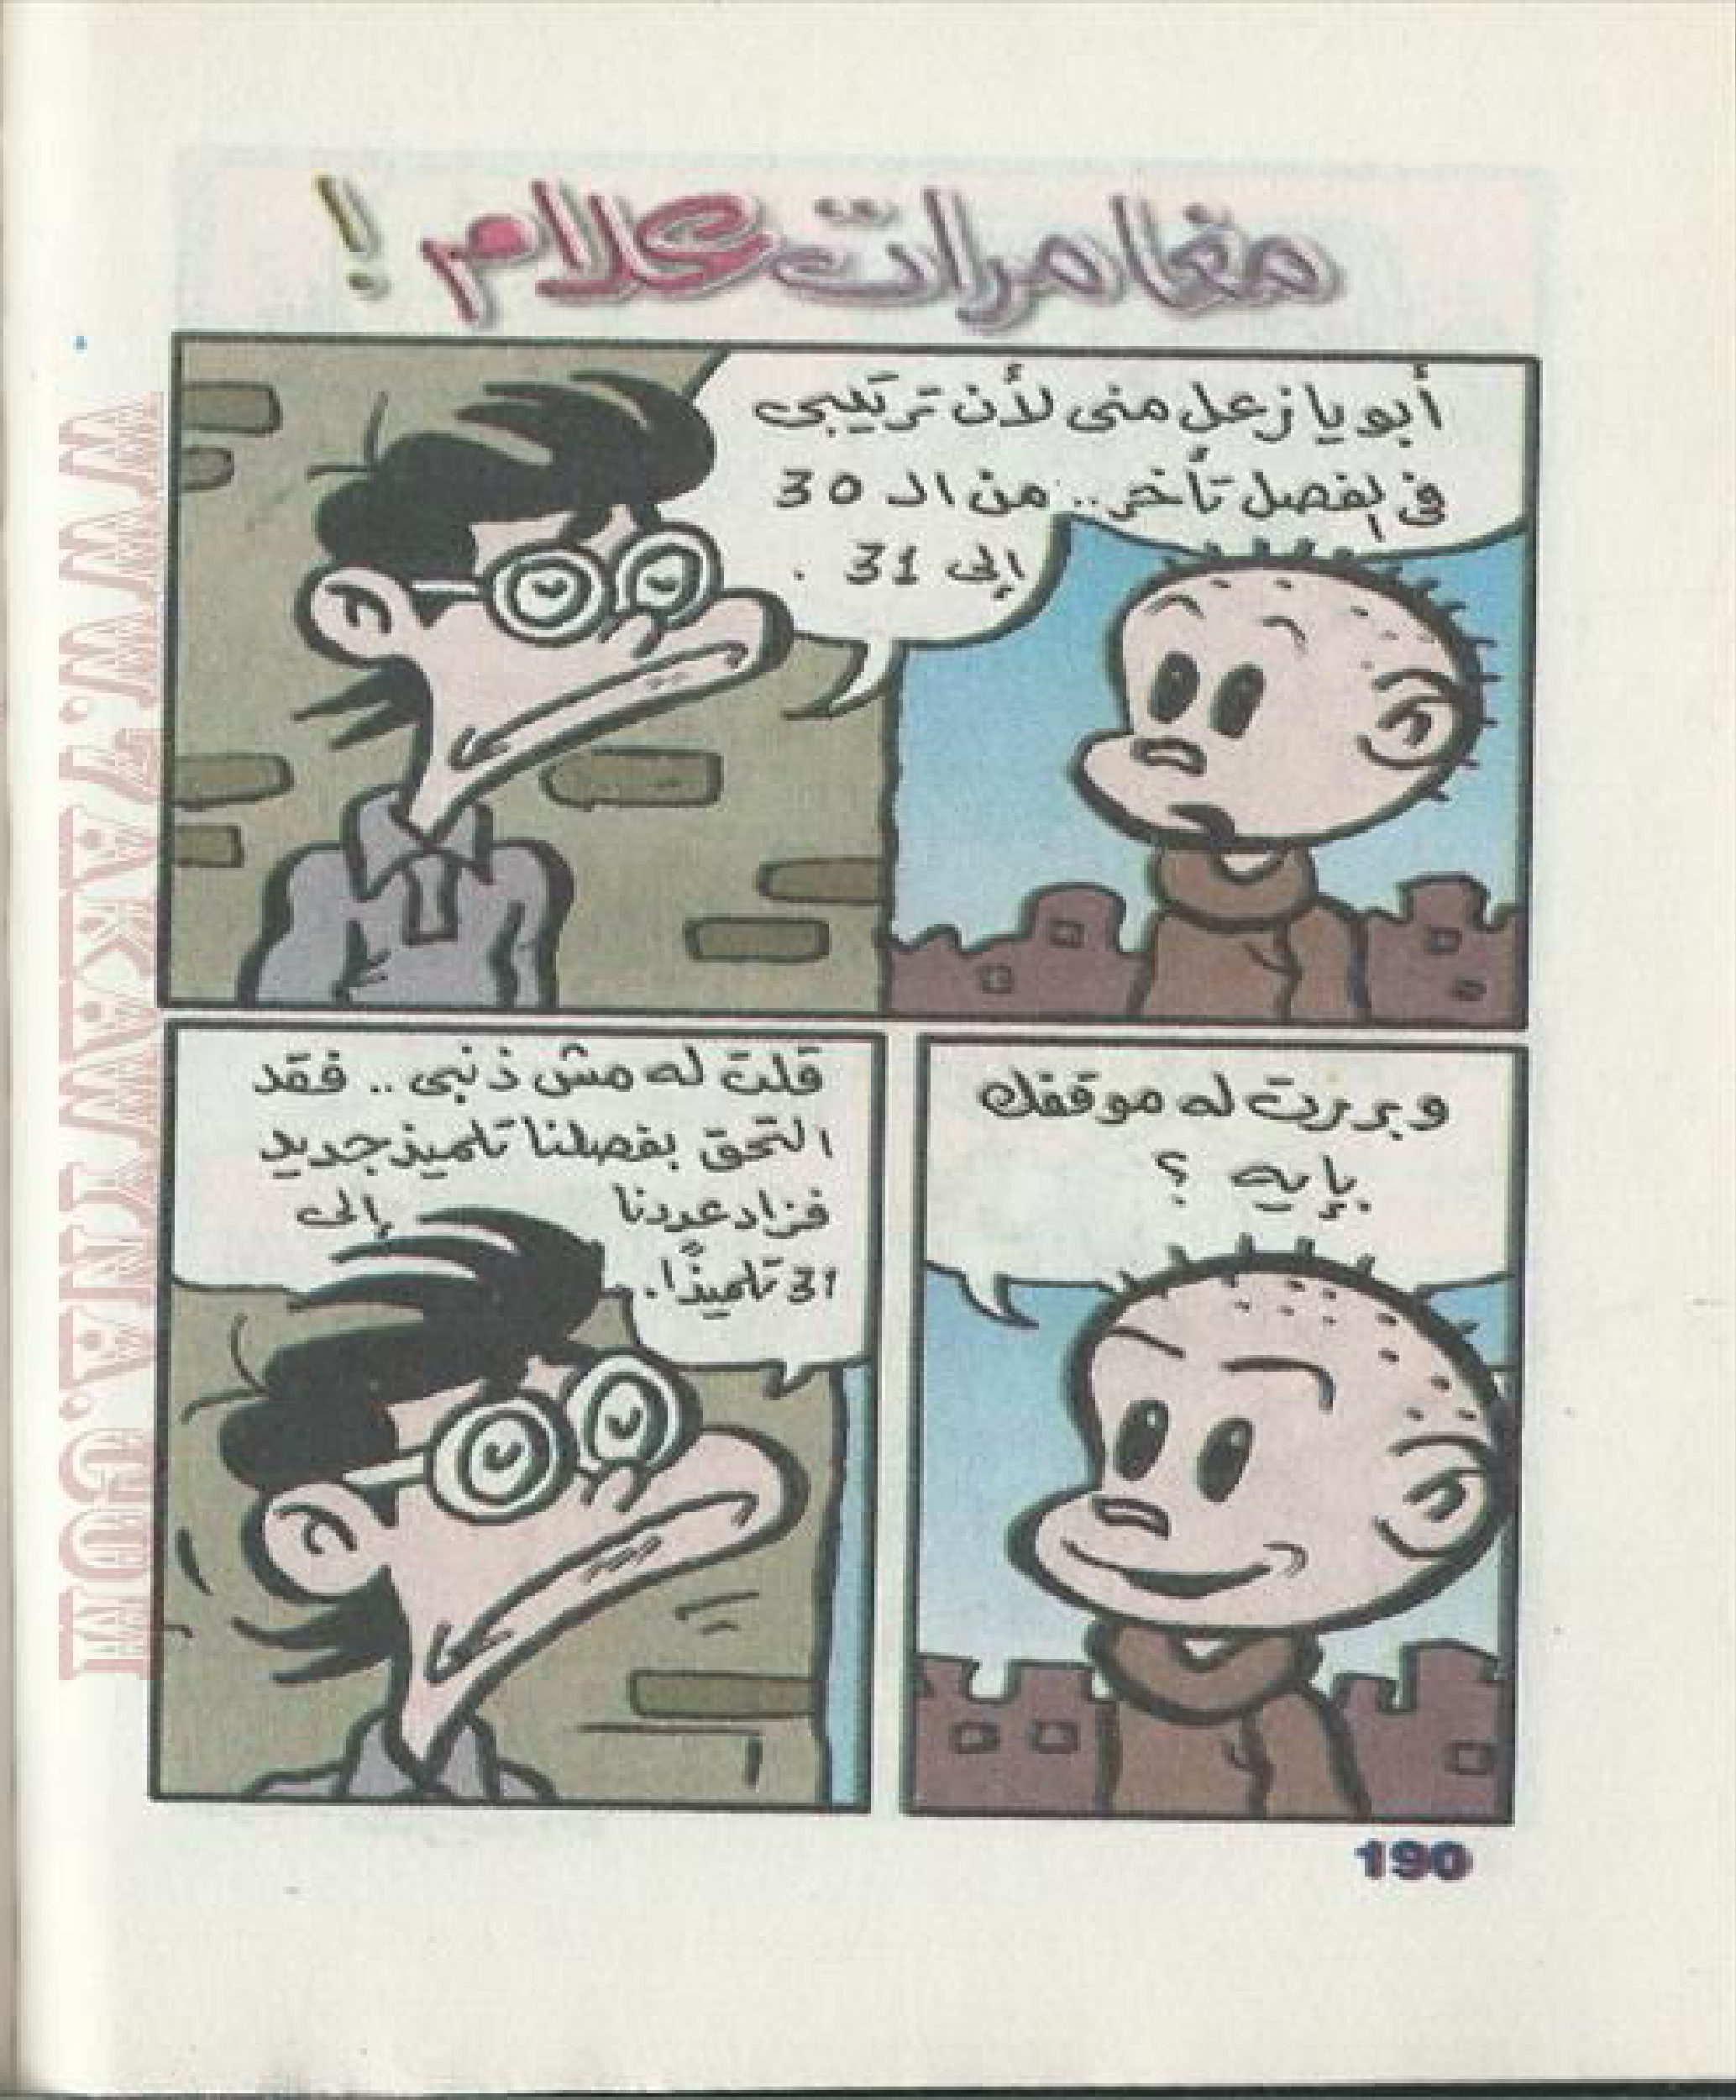 مغامرات علام !
أبويا زعل منى لأن ترتيبى
فى الفصل تأخر .. من الـ 30
إلى 31 .
وبررت له موقفك
بإيه ؟
قلت له مش ذنبى .. فقد
التحق بفصلنا تلميذ جديد
فزاد عددنا إلى
31 تلميذًا .
190
WWW.ZAKAWTNA.COM